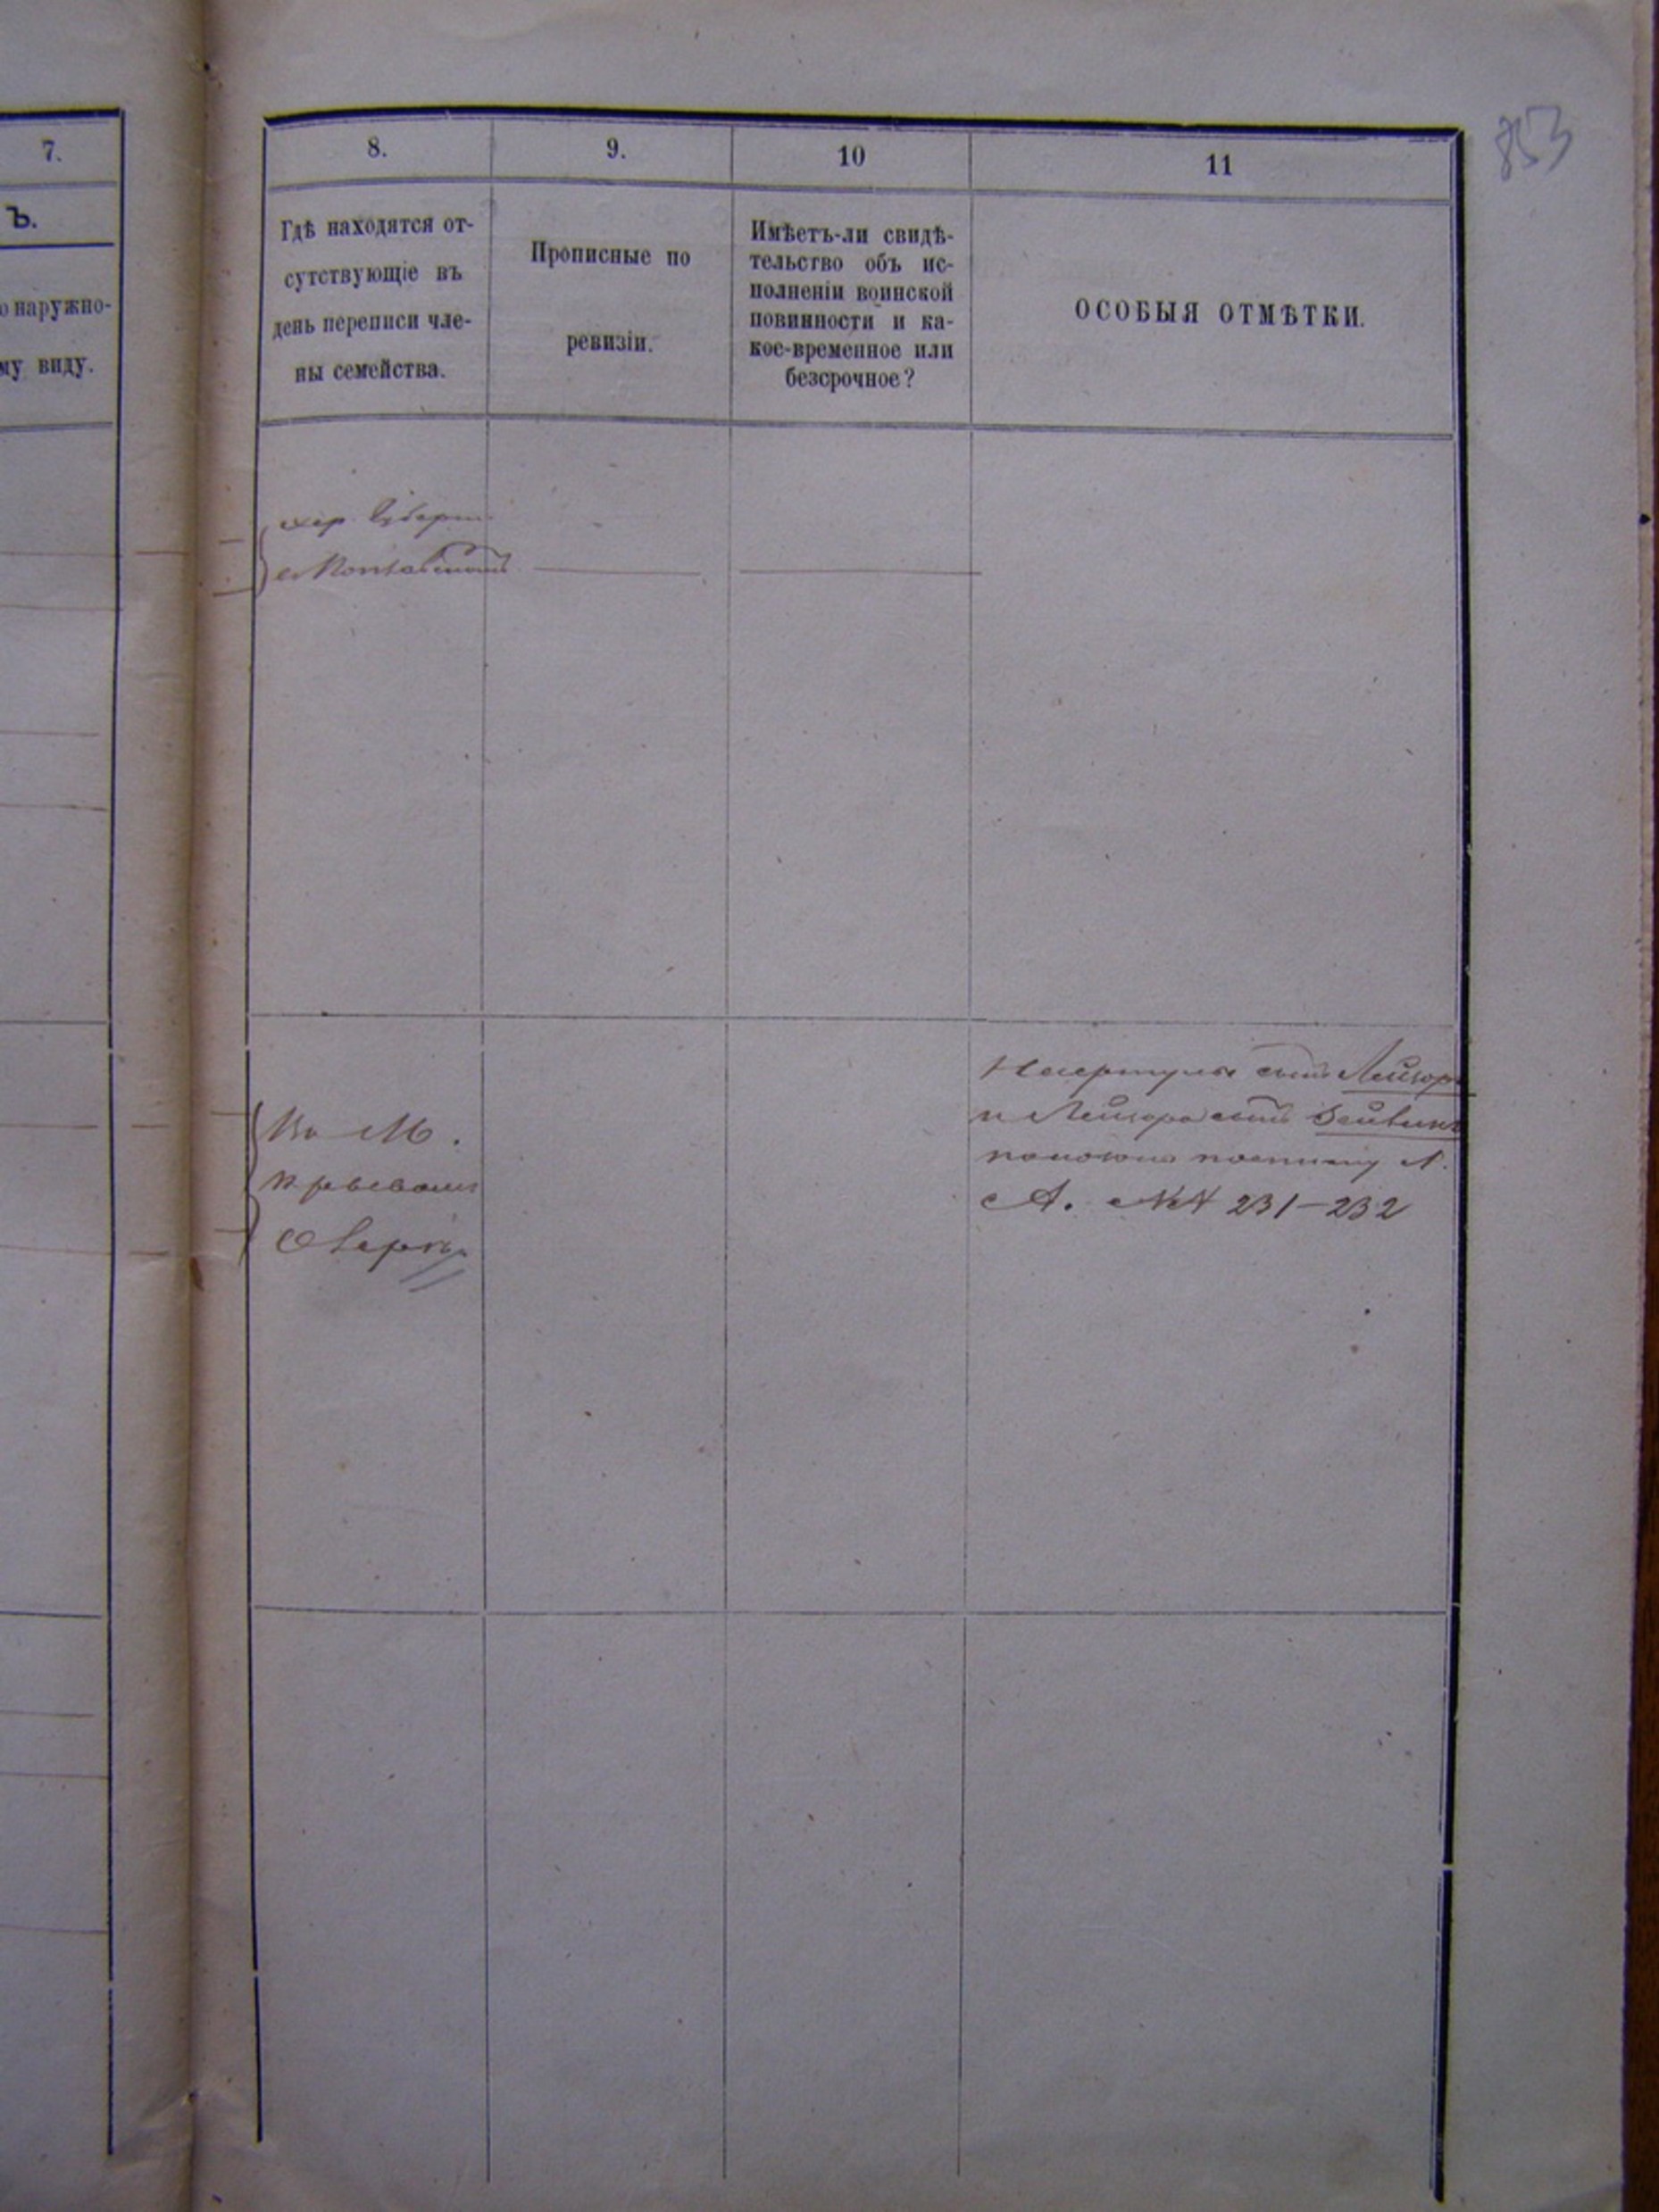 853
7.
Ъ.
о наружно-
му виду.
8.
9.
10
11
Гдѣ находятся от-
сутствующіе въ
день переписи чле-
ны семейства.
Прописные по
ревизіи.
Имѣетъ-ли свидѣ-
тельство объ ис-
полненіи воинской
повинности и ка-
кое-временное или
безсрочное?
ОСОБЫЯ ОТМѢТКИ.
хер. Губерн
Въ М.
сынъ Лейзоръ
и Лейзора сынъ
А. №№ 231-232